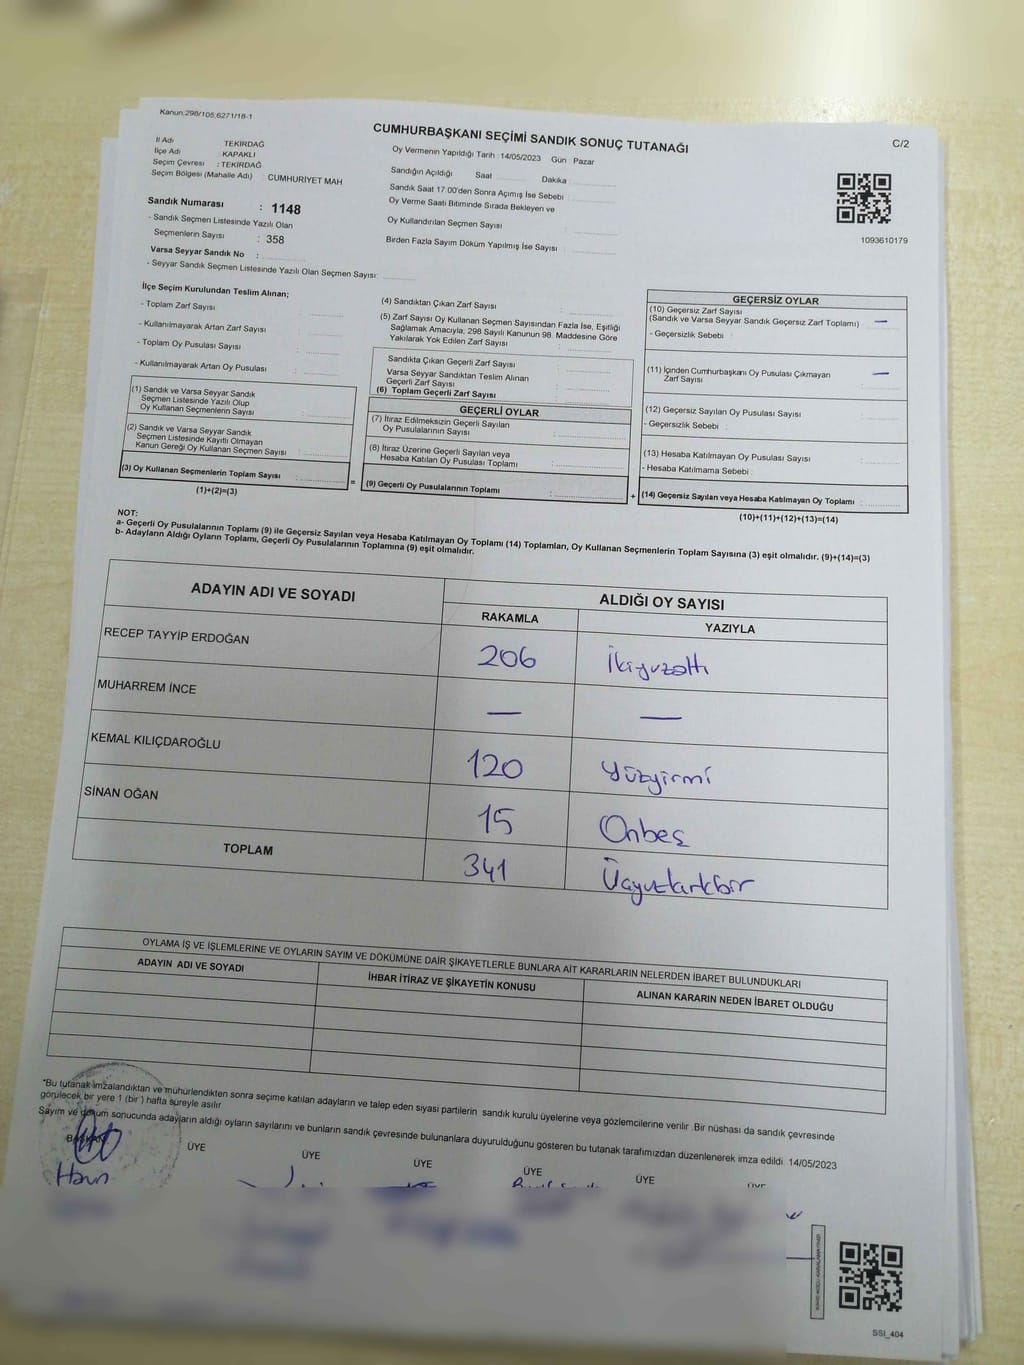 Kanun:298/105,6271/18-1
CUMHURBAŞKANI SEÇİMİ SANDIK SONUÇ TUTANAĞI
C/2
İl Adı TEKİRDAĞ
İlçe Adı : KAPAKLI
Seçim Çevresi : TEKİRDAĞ
Seçim Bölgesi (Mahalle Adı) : CUMHURİYET MAH
Sandık Numarası : 1148
- Sandık Seçmen Listesinde Yazılı Olan
Seçmenlerin Sayısı : 358
Varsa Seyyar Sandık No :
- Seyyar Sandık Seçmen Listesinde Yazılı Olan Seçmen Sayısı:
Oy Vermenin Yapıldığı Tarih : 14/05/2023 Gün : Pazar
Sandığın Açıldığı Saat Dakika
Sandık Saat 17.00'den Sonra Açımış İse Sebebi :
Oy Verme Saati Bitiminde Sırada Bekleyen ve
Oy Kullandırılan Seçmen Sayısı :
Birden Fazla Sayım Döküm Yapılmış İse Sayısı :
1093610179
İlçe Seçim Kurulundan Teslim Alınan;
- Toplam Zarf Sayısı :
- Kullanılmayarak Artan Zarf Sayısı :
- Toplam Oy Pusulası Sayısı :
- Kullanılmayarak Artan Oy Pusulası :
(1) Sandık ve Varsa Seyyar Sandık
Seçmen Listesinde Yazılı Olup
Oy Kullanan Seçmenlerin Sayısı :
(2) Sandık ve Varsa Seyyar Sandık
Seçmen Listesinde Kayıtlı Olmayan
Kanun Gereği Oy Kullanan Seçmen Sayısı :
(3) Oy Kullanan Seçmenlerin Toplam Sayısı :
(1)+(2)=(3)
(4) Sandıktan Çıkan Zarf Sayısı :
(5) Zarf Sayısı Oy Kullanan Seçmen Sayısından Fazla İse, Eşitliği
Sağlamak Amacıyla, 298 Sayılı Kanunun 98. Maddesine Göre
Yakılarak Yok Edilen Zarf Sayısı :
Sandıkta Çıkan Geçerli Zarf Sayısı :
Varsa Seyyar Sandıktan Teslim Alınan
Geçerli Zarf Sayısı :
(6) Toplam Geçerli Zarf Sayısı :
GEÇERLİ OYLAR
(7) İtiraz Edilmeksizin Geçerli Sayılan
Oy Pusulalarının Sayısı :
(8) İtiraz Üzerine Geçerli Sayılan veya
Hesaba Katılan Oy Pusulası Toplamı :
= (9) Geçerli Oy Pusulalarının Toplamı :
GEÇERSİZ OYLAR
(10) Geçersiz Zarf Sayısı
(Sandık ve Varsa Seyyar Sandık Geçersiz Zarf Toplamı) : —
- Geçersizlik Sebebi :
(11) İçinden Cumhurbaşkanı Oy Pusulası Çıkmayan : —
Zarf Sayısı
(12) Geçersiz Sayılan Oy Pusulası Sayısı :
- Geçersizlik Sebebi :
(13) Hesaba Katılmayan Oy Pusulası Sayısı :
- Hesaba Katılmama Sebebi :
+ (14) Geçersiz Sayılan veya Hesaba Katılmayan Oy Toplamı :
(10)+(11)+(12)+(13)=(14)
NOT:
a- Geçerli Oy Pusulalarının Toplamı (9) ile Geçersiz Sayılan veya Hesaba Katılmayan Oy Toplamı (14) Toplamları, Oy Kullanan Seçmenlerin Toplam Sayısına (3) eşit olmalıdır. (9)+(14)=(3)
b- Adayların Aldığı Oyların Toplamı, Geçerli Oy Pusulalarının Toplamına (9) eşit olmalıdır.
ADAYIN ADI VE SOYADI ALDIĞI OY SAYISI
RAKAMLA YAZIYLA
RECEP TAYYİP ERDOĞAN 206 İkiyüzaltı
MUHARREM İNCE — —
KEMAL KILIÇDAROĞLU 120 Yüzyirmi
SİNAN OĞAN 15 Onbeş
TOPLAM 341 Üçyüzkırkbir
OYLAMA İŞ VE İŞLEMLERİNE VE OYLARIN SAYIM VE DÖKÜMÜNE DAİR ŞİKAYETLERLE BUNLARA AİT KARARLARIN NELERDEN İBARET BULUNDUKLARI
ADAYIN ADI VE SOYADI İHBAR İTİRAZ VE ŞİKAYETİN KONUSU ALINAN KARARIN NEDEN İBARET OLDUĞU
*Bu tutanak imzalandıktan ve mühürlendikten sonra seçime katılan adayların ve talep eden siyasi partilerin sandık kurulu üyelerine veya gözlemcilerine verilir .Bir nüshası da sandık çevresinde
görülecek bir yere 1 (bir ) hafta süreyle asılır.
Sayım ve döküm sonucunda adayların aldığı oyların sayılarını ve bunların sandık çevresinde bulunanlara duyurulduğunu gösteren bu tutanak tarafımızdan düzenlenerek imza edildi. 14/05/2023
BAŞKAN ÜYE ÜYE ÜYE ÜYE ÜYE ÜYE
SSI_404